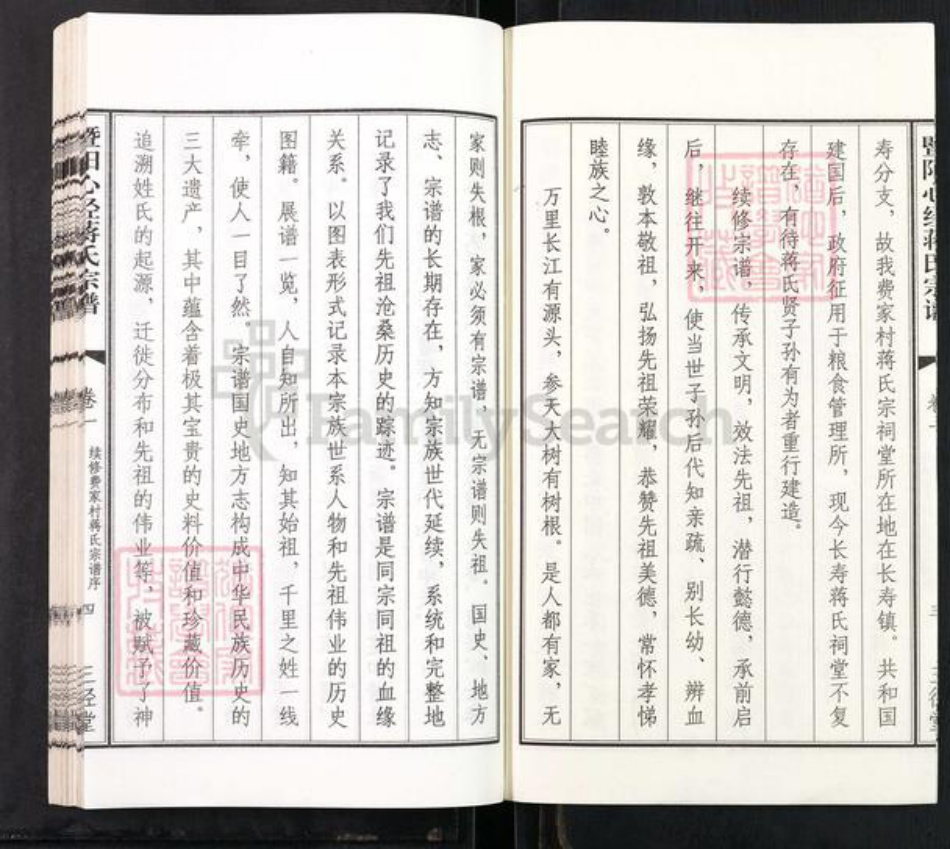 寿分支，故我费家村蒋氏宗祠堂所在地在长寿镇。共和国
建国后，政府征用于粮食管理所，现今长寿蒋氏祠堂不复
存在，有待蒋氏贤子孙有为者重行建造。
续修宗谱，传承文明，效法先祖，潜行懿德，承前启
后，继往开来，使当世子孙后代知亲疏、别长幼、辨血
缘，敦本敬祖，弘扬先祖荣耀，恭赞先祖美德，常怀孝悌
睦族之心。
万里长江有源头，参天大树有树根。是人都有家，无
家则失根，家必须有宗谱，无宗谱则失祖。国史、地方
志、宗谱的长期存在，方知宗族世代延续，系统和完整地
记录了我们先祖沧桑历史的踪迹。宗谱是同宗同祖的血缘
关系。以图表形式记录本宗族世系人物和先祖伟业的历史
图籍。展谱一览，人自知所出，知其始祖，千里之姓一线
牵，使人一目了然。宗谱国史地方志构成中华民族历史的
三大遗产，其中蕴含着极其宝贵的史料价值和珍藏价值。
追溯姓氏的起源，迁徙分布和先祖的伟业等，被赋予了神
暨阳心径蒋氏宗谱
卷一
续修费家村蒋氏宗谱序
四
三径堂
FamilySearch